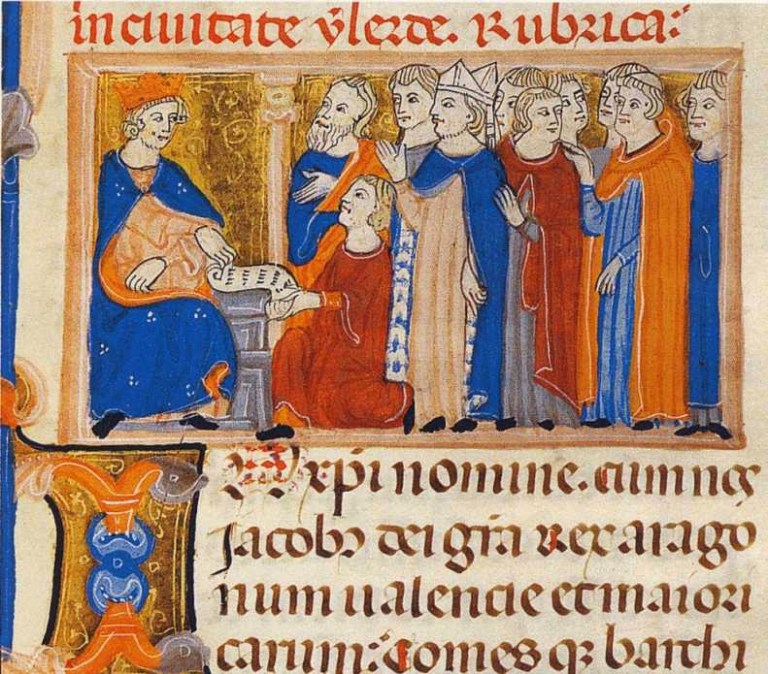 in ciuitate ylerde. Rubrica:
IN xpi nomine. cum nos
Jacobus dei gra rex arago
num ualencie et maiori
carum: Comes qz barchi